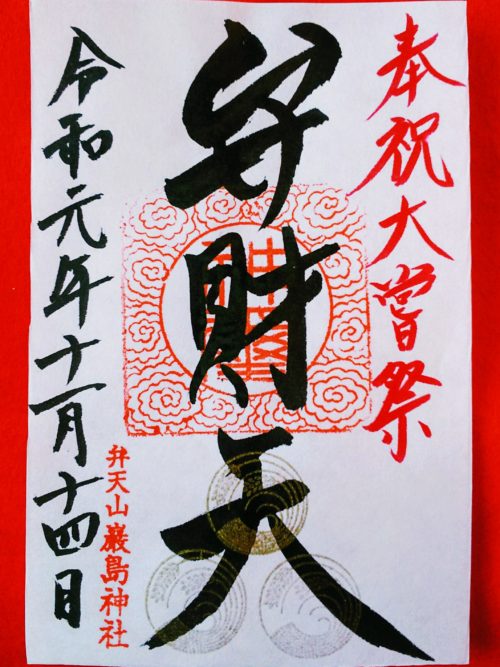 奉祝大嘗祭
弁財天
令和元年十一月十四日
弁天山巌島神社